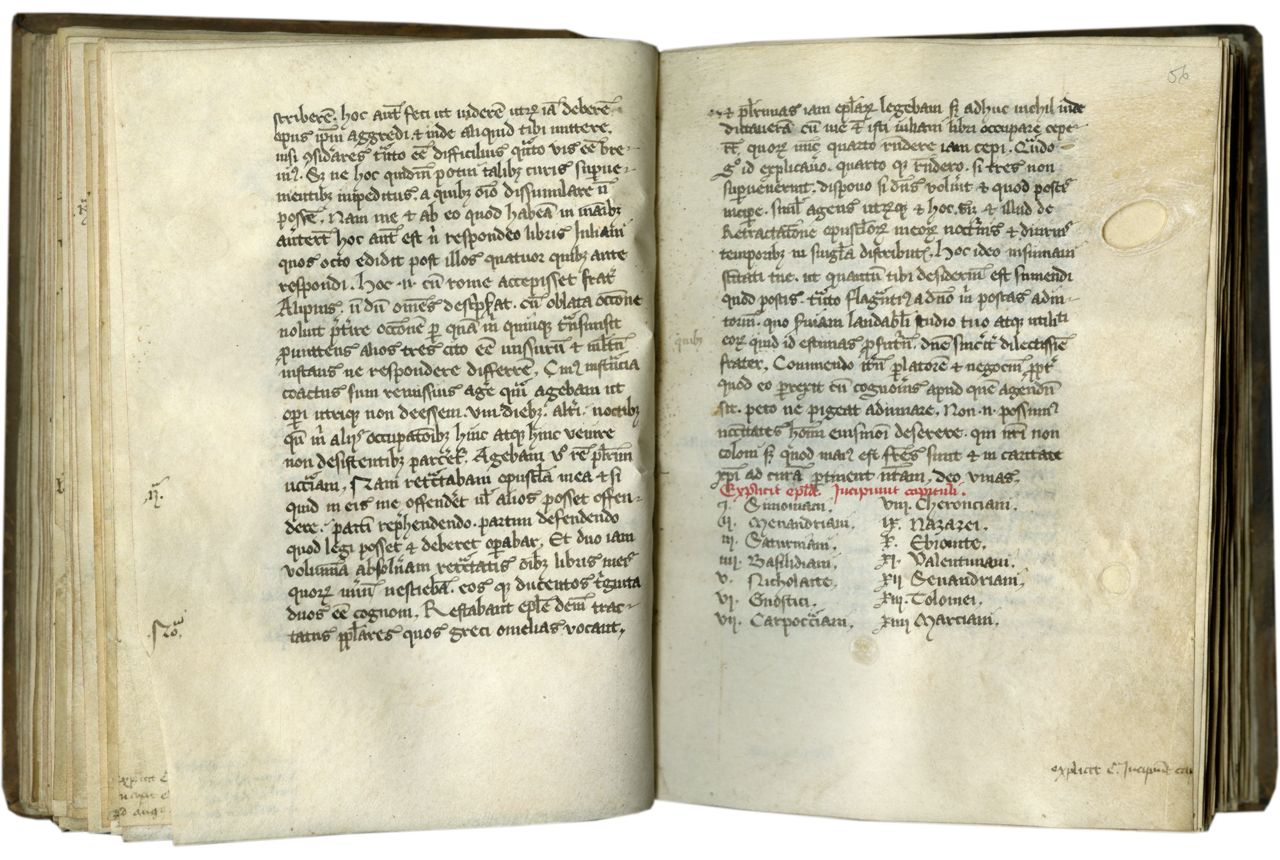 scriberē. hoc aut̄ feci ut viderē utrꝫ iā deberē
opus ip̄m aggredi ⁊ inde aliquid tibi mittere.
nisi ꝯsid̓ares tāto eē difficilius q̄to vis eē bre-
iꝰ. Sꝫ ne hoc quidē potui talibꝫ curis supue-
nientibꝫ impeditus. a quibꝫ oīo dissimulare n̄
possē. Nam me ⁊ ab eo quod habeā in māibꝫ
au̓terēt hoc aut̄ est q̓ respondeo libris Juliani
quos octo edidit post illos quatuor quibꝫ ante
respondi. hoc .n. cū rome accepisset frat̓
Alipius. n̄ dū omēs desc̓pserat. cū oblatā occōnē
noluit p̄t̓ire occōnē ꝑ quā m̓ quinqꝫ t̓nsmisit
ꝓmittens alios tres cito eē missurū ⁊ mltū
instans ne respondere differrē. Cꝰ instācia
coactus sum remissius age̓ q̄ agebam ut
oꝑi utrique non deessem. uni diebꝫ. alt̓i noctibꝫ
qn̄ m̓ ab alijs occupatōibꝫ hinc atqꝫ hinc venire
non desistentibꝫ parce̓t. Agebam v̓ rē pl̓imū
nccāriam. Nam ret̓ctabam opuscl̄a mea ⁊ si
quid in eis me offendet̓ ul̓ alios posset offen-
dere. partī rep̓hendendo. partim defendendo
quod legi posset ⁊ deberet oꝑabar. Et duo iam
volumīa absoluerā ret̓ctatis oībꝫ libris meis
quorꝫ nūm̄ nesciebā. eos qꝫ ducentos t̓ginta
duos eē cognoui. Restabant epl̄e deīn trac-
tatus ppl̄ares quos greci omelias vocant.
n̄.
No.
explicit
56
⁊ pl̓imas iam epl̄arꝫ legebam sꝫ adhuc nichil inde
dictauerā cū me ⁊ isti iuliani libri occupare cepe-
rt̄. quorꝫ nūc quarto rn̄dere iam cepi. Qn̄do
g̊ id explicauō. quarto qꝫ rn̄dero. si tres non
supuenerint. dispono si dn̄s volūit ⁊ quod poscis
incipe. siml̓ agens utrqꝫ ⁊ hoc scꝫ ⁊ illud de
Retractatōne opusclōrꝫ meorꝫ noct̓nis ⁊ diurnis
temporibꝫ in singl̄a distributis. hoc ideo insinuaui
sc̄titati tue. ut quantū tibi desideriū est sumendi
quod poscis. tāto flag̓ntiꝰ a dn̄o m̓ poscas adiu-
toriū. quo s̓uiam laudabl̓i studio tuo atqꝫ utiliti
eorꝫ quid id estimas ꝓfuturū. dn̄e sanct̓ dilectissīe
frater. Commendo itm̄ ꝑlatorē ⁊ negociū ꝓpt̓
quod eo ꝑrexit cū cognou̓is apud quē agendū
sit. peto ne pigeat adiuuare. Non .n. possumꝰ
nccītates hoīm eiusmōi deserere. qui n̄ri non
coloni sꝫ quod maiꝰ est fr̄es sunt ⁊ in caritate
xp̄i ad curā ꝑtinent n̄ram. deo viuas.
Explicit epl̄a. Incipiunt capituli.
j. Simoniani. viij. Cheronciani.
ij. Menandriani. ix. Nazarei.
iij. Saturniani. x. Ebionite.
iiij. Basilidiani. xi. Valentiniani.
v. Nicholaite. xij Senandriani.
vj. Gnostici. xiij. Tolomei.
vij. Carpocc̓iani. xiiij Marciani.
quibꝫ
explicit e. Incipiūt cap